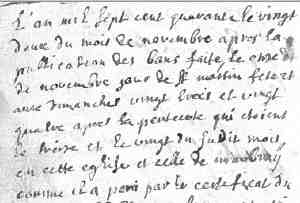 L'an mil sept cent quarante le vingt
deux du mois de novembre apres la
publication des bans faite le onze
de novembre jour de St martin feste et
aux dimanches vingt trois et vingt
quatre apres la pentecote qui etoient
le treize et le vingt du susdit mois
en cette eglise et celle de
comme il a paru par le certificat du